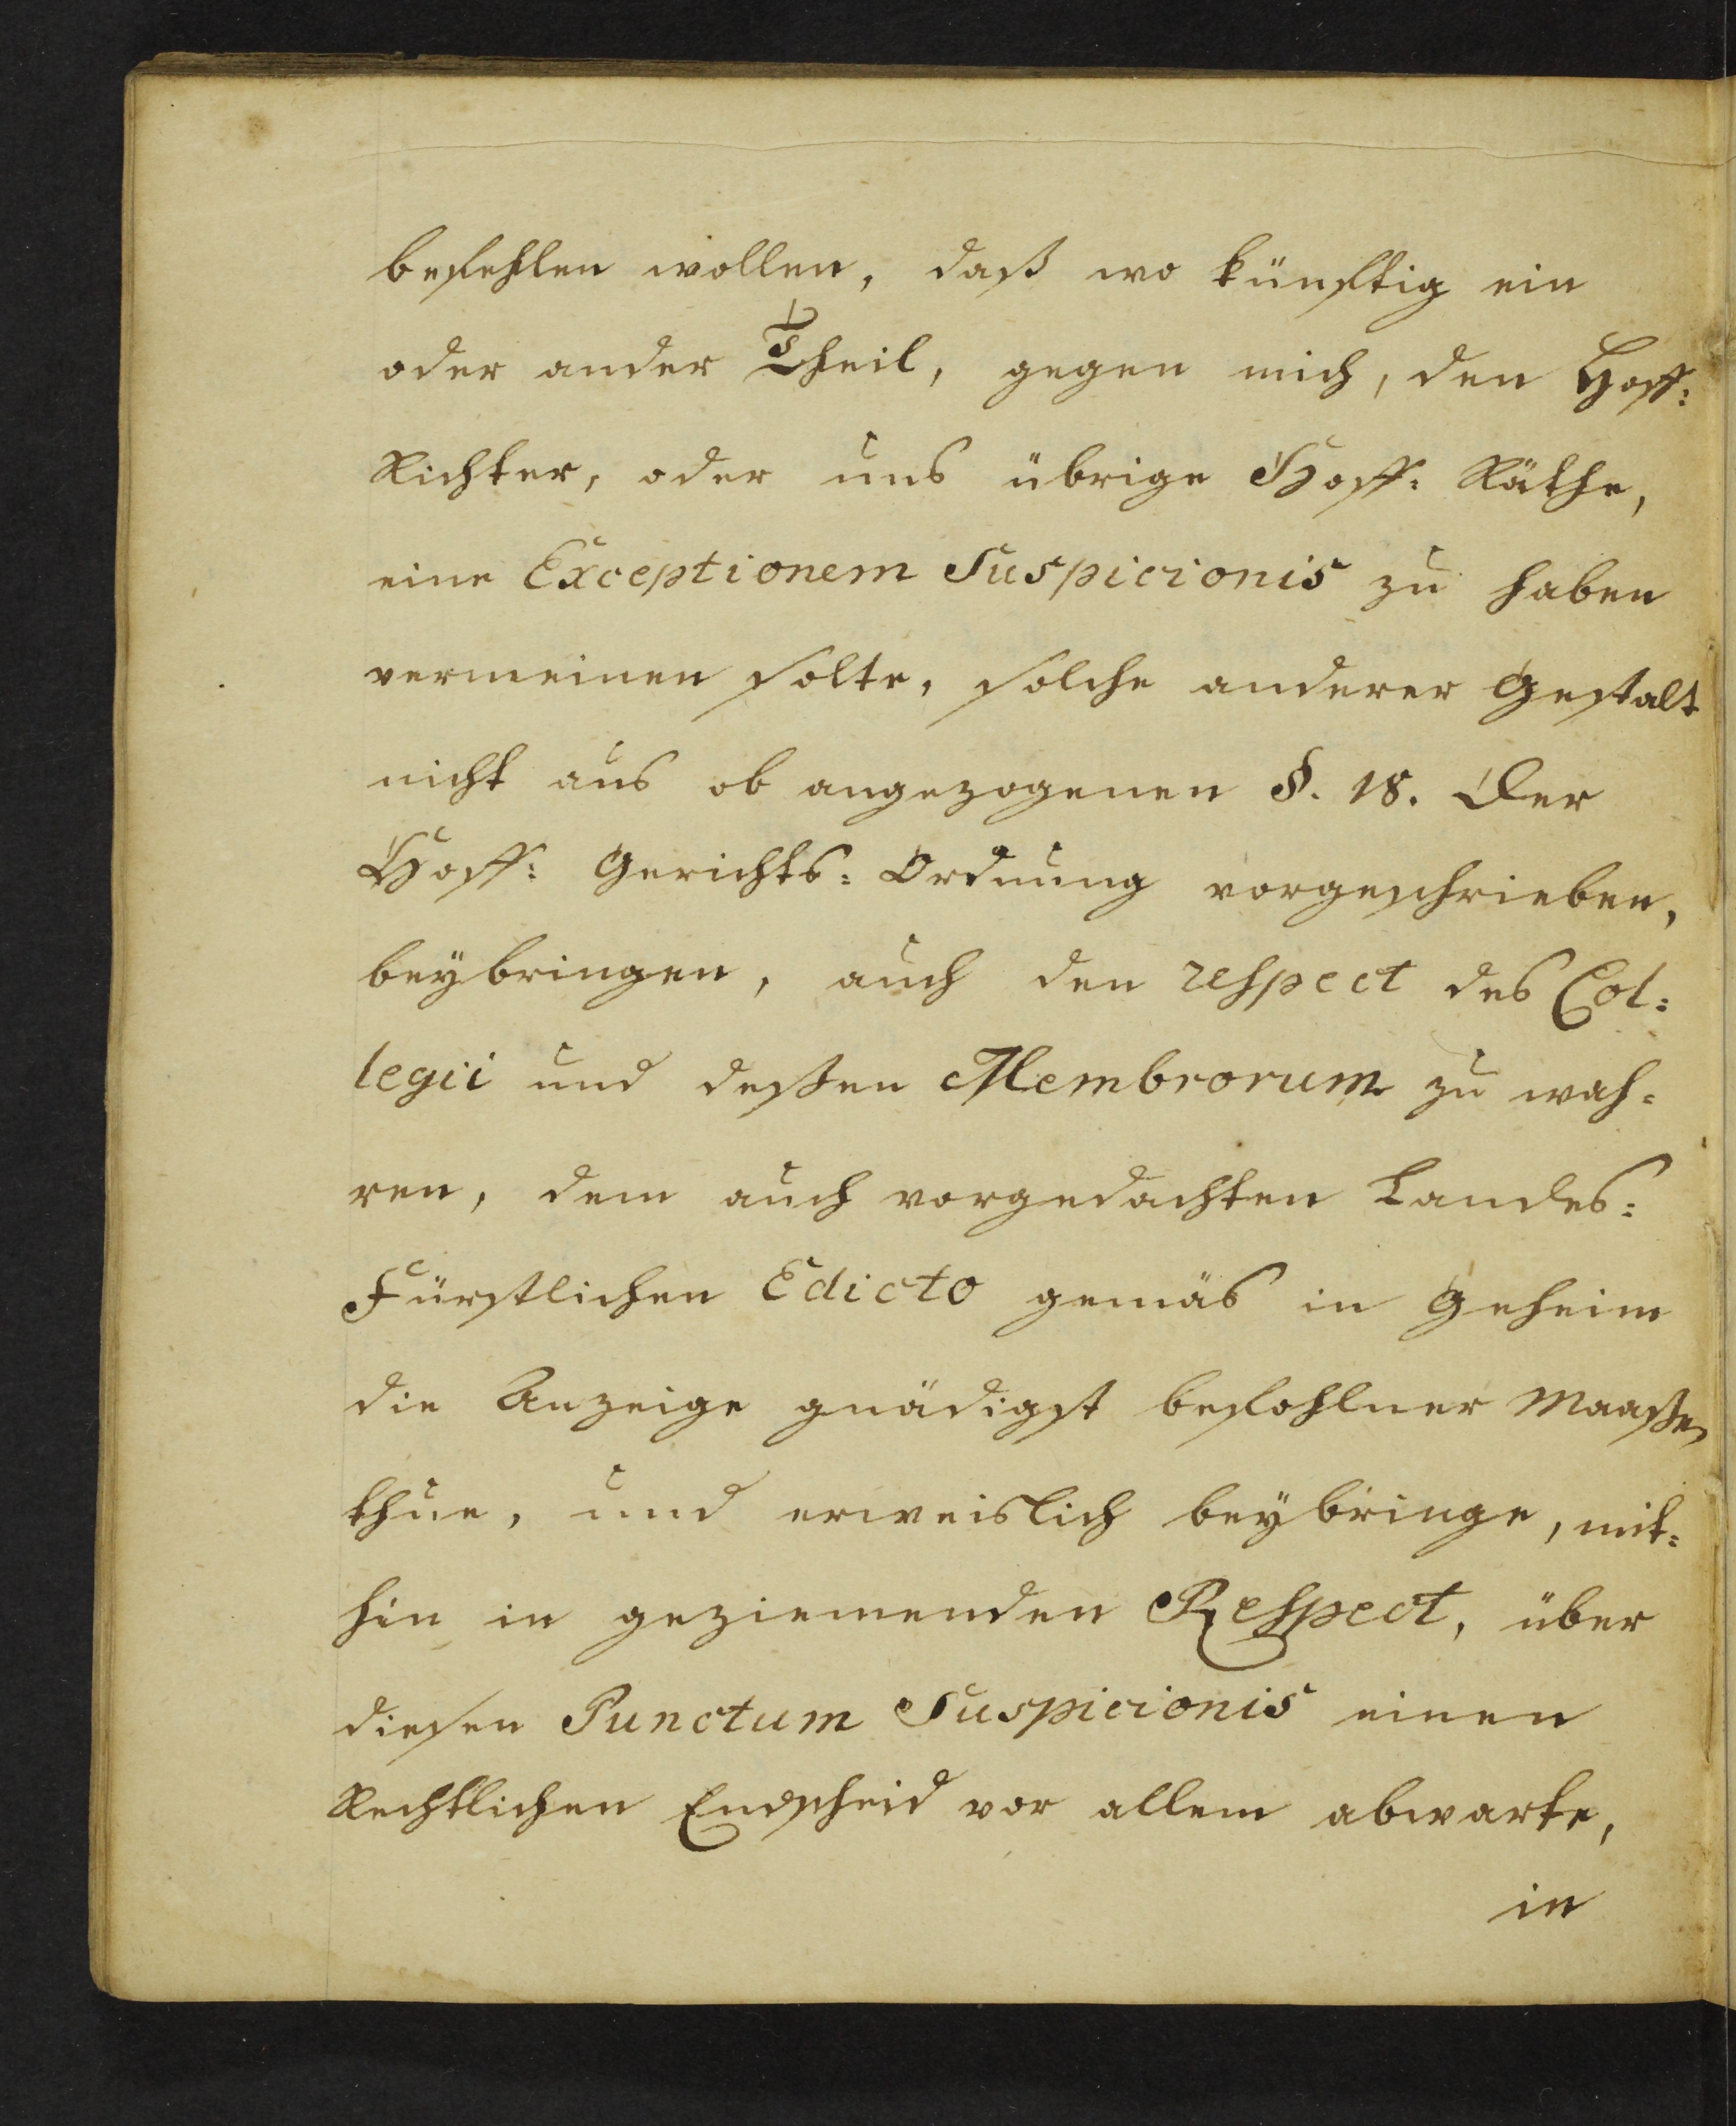 befehlen wollen, daß wo künfftig ein
oder ander Theil, gegen mich, den Hoff:
Richter, oder uns übrige Hoff: Räthe,
eine Exceptionem Suspicionis zu haben
vermeinen solte, solche anderer Gestalt
nicht aus ob angezogenen §. 18. Der
Hoff: Gerichts: Ordnung vorgeschrieben,
beybringen, auch den respect des Col:
legii und deßen Membrorum zu wah:
ren, dem auch vorgedachten Landes:
Fürstlichen Edicto gemäs in Geheim
die Anzeige gnädigst befohlner Maaßen
thue, und erweislich beybringe, mit:
hin in geziemenden Respect, über
diesen Punctum Suspicionis einen
Rechtlichen Endscheid vor allem abwarte,
in